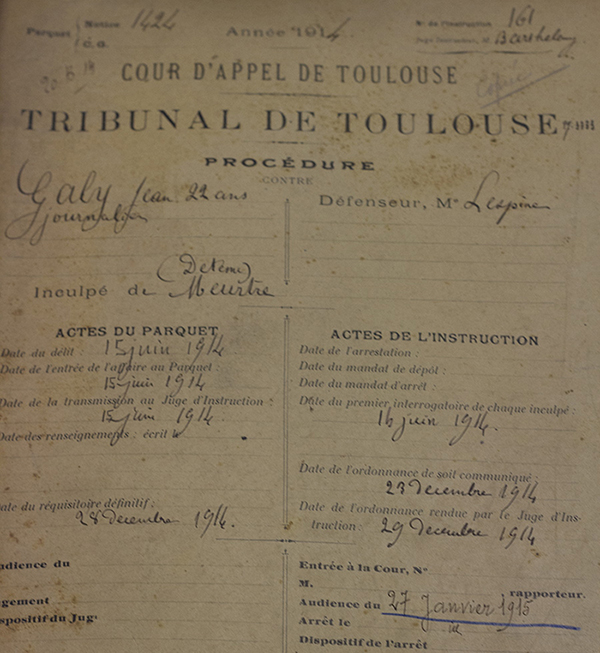 Parquet { Notice 1424
C. G.
Année 1914
N° de l'Instruction : 161
Juge d'Instruction, M. Barthelemy
COUR D'APPEL DE TOULOUSE
TRIBUNAL DE TOULOUSE
PROCÉDURE
CONTRE
Galy Jean 22 ans
journalier
Défenseur, Me Lespine
(Détenu)
Inculpé de Meurtre
ACTES DU PARQUET
Date du délit : 15 juin 1914
Date de l'entrée de l'affaire au Parquet :
15 juin 1914
Date de la transmission au Juge d'Instruction :
15 juin 1914
Date des renseignements : écrit le
Date du réquisitoire définitif :
28 decembre 1914.
ACTES DE L'INSTRUCTION
Date de l'arrestation :
Date du mandat de dépôt :
Date du mandat d'arrêt :
Date du premier interrogatoire de chaque inculpé :
16 juin 1914.
Date de l'ordonnance de soit communiqué :
23 decembre 1914
Date de l'ordonnance rendue par le Juge d'Ins-
truction : 29 decembre 1914
udience du
gement
spositif du Jug
Entrée à la Cour, N°
M. rapporteur.
Audience du 27 Janvier 1915
Arrêt le id
Dispositif de l'arrêt